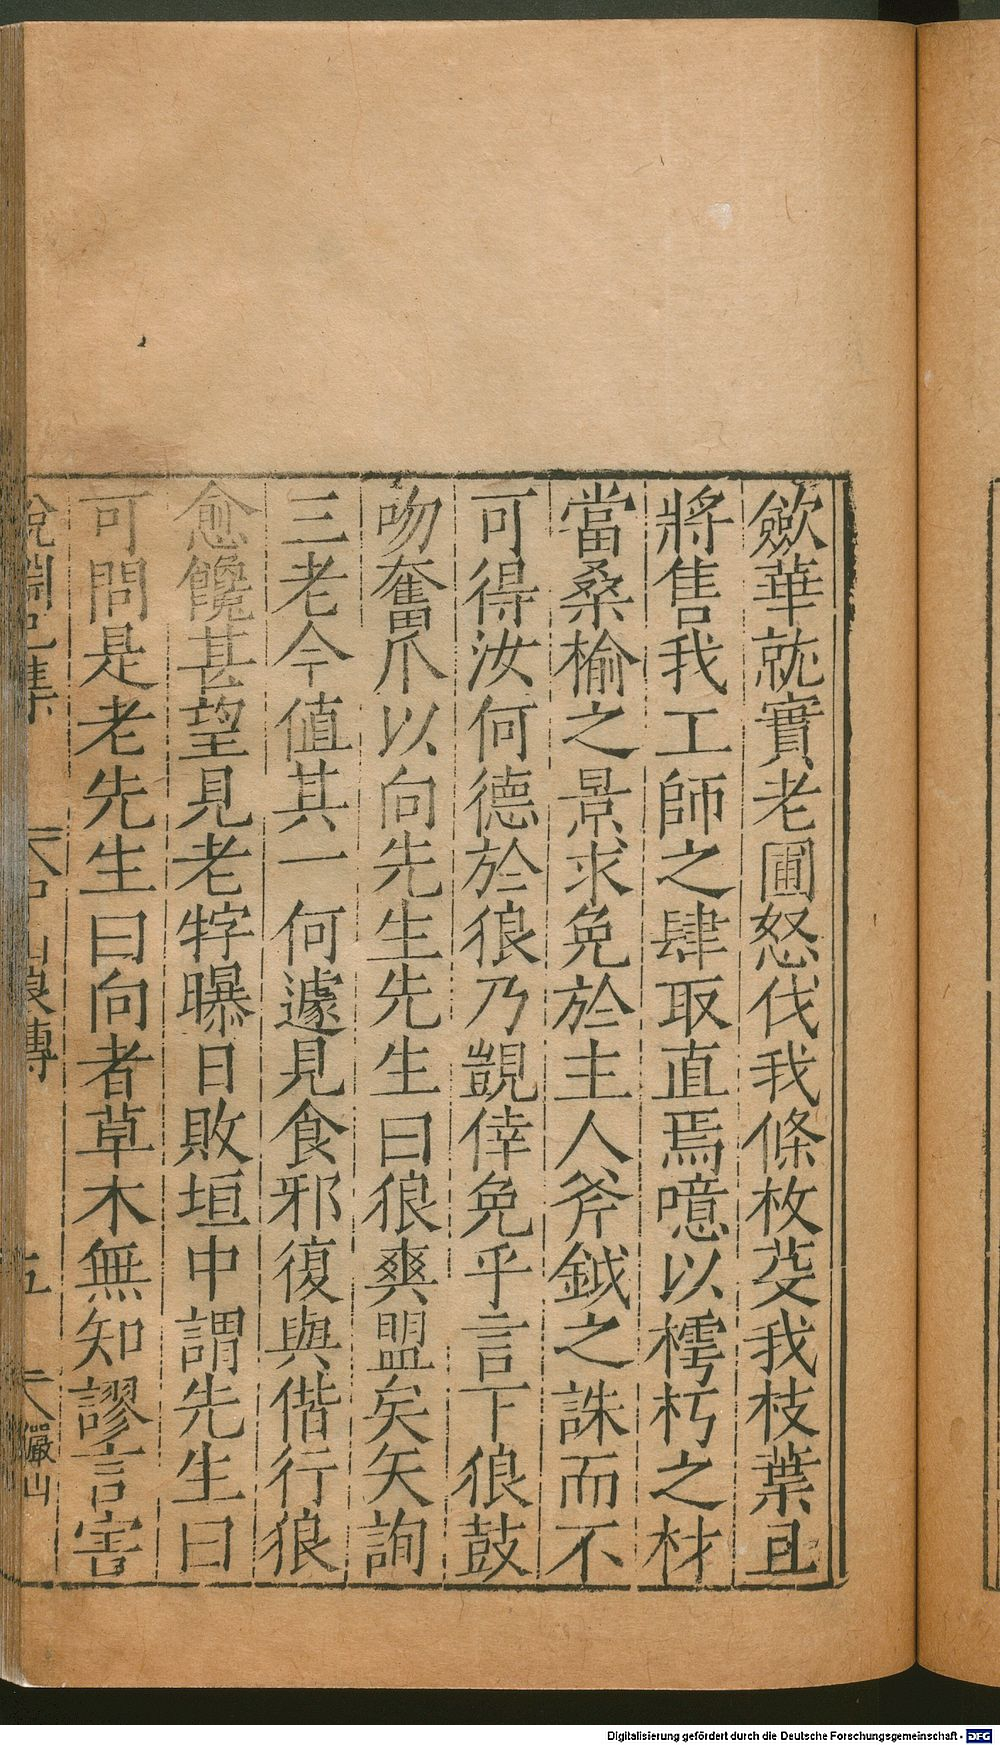 歛華就實老圃怒伐我條枚芟我枝葉且
將售我工師之肆取直焉噫以樗朽之材
當桑榆之景求免於主人斧鉞之誅而不
可得汝何德於狼乃覬倖免乎言下狼鼓
吻奮爪以向先生先生曰狼爽盟矣矢詢
三老今值其一何遽見食邪復與偕行狼
愈饞甚望見老牸曝日敗垣中謂先生曰
可問是老先生曰向者草木無知謬言害
說淵己集 中山狼傳 五 儼山
Digitalisierung gefördert durch die Deutsche Forschungsgemeinschaft - DFG